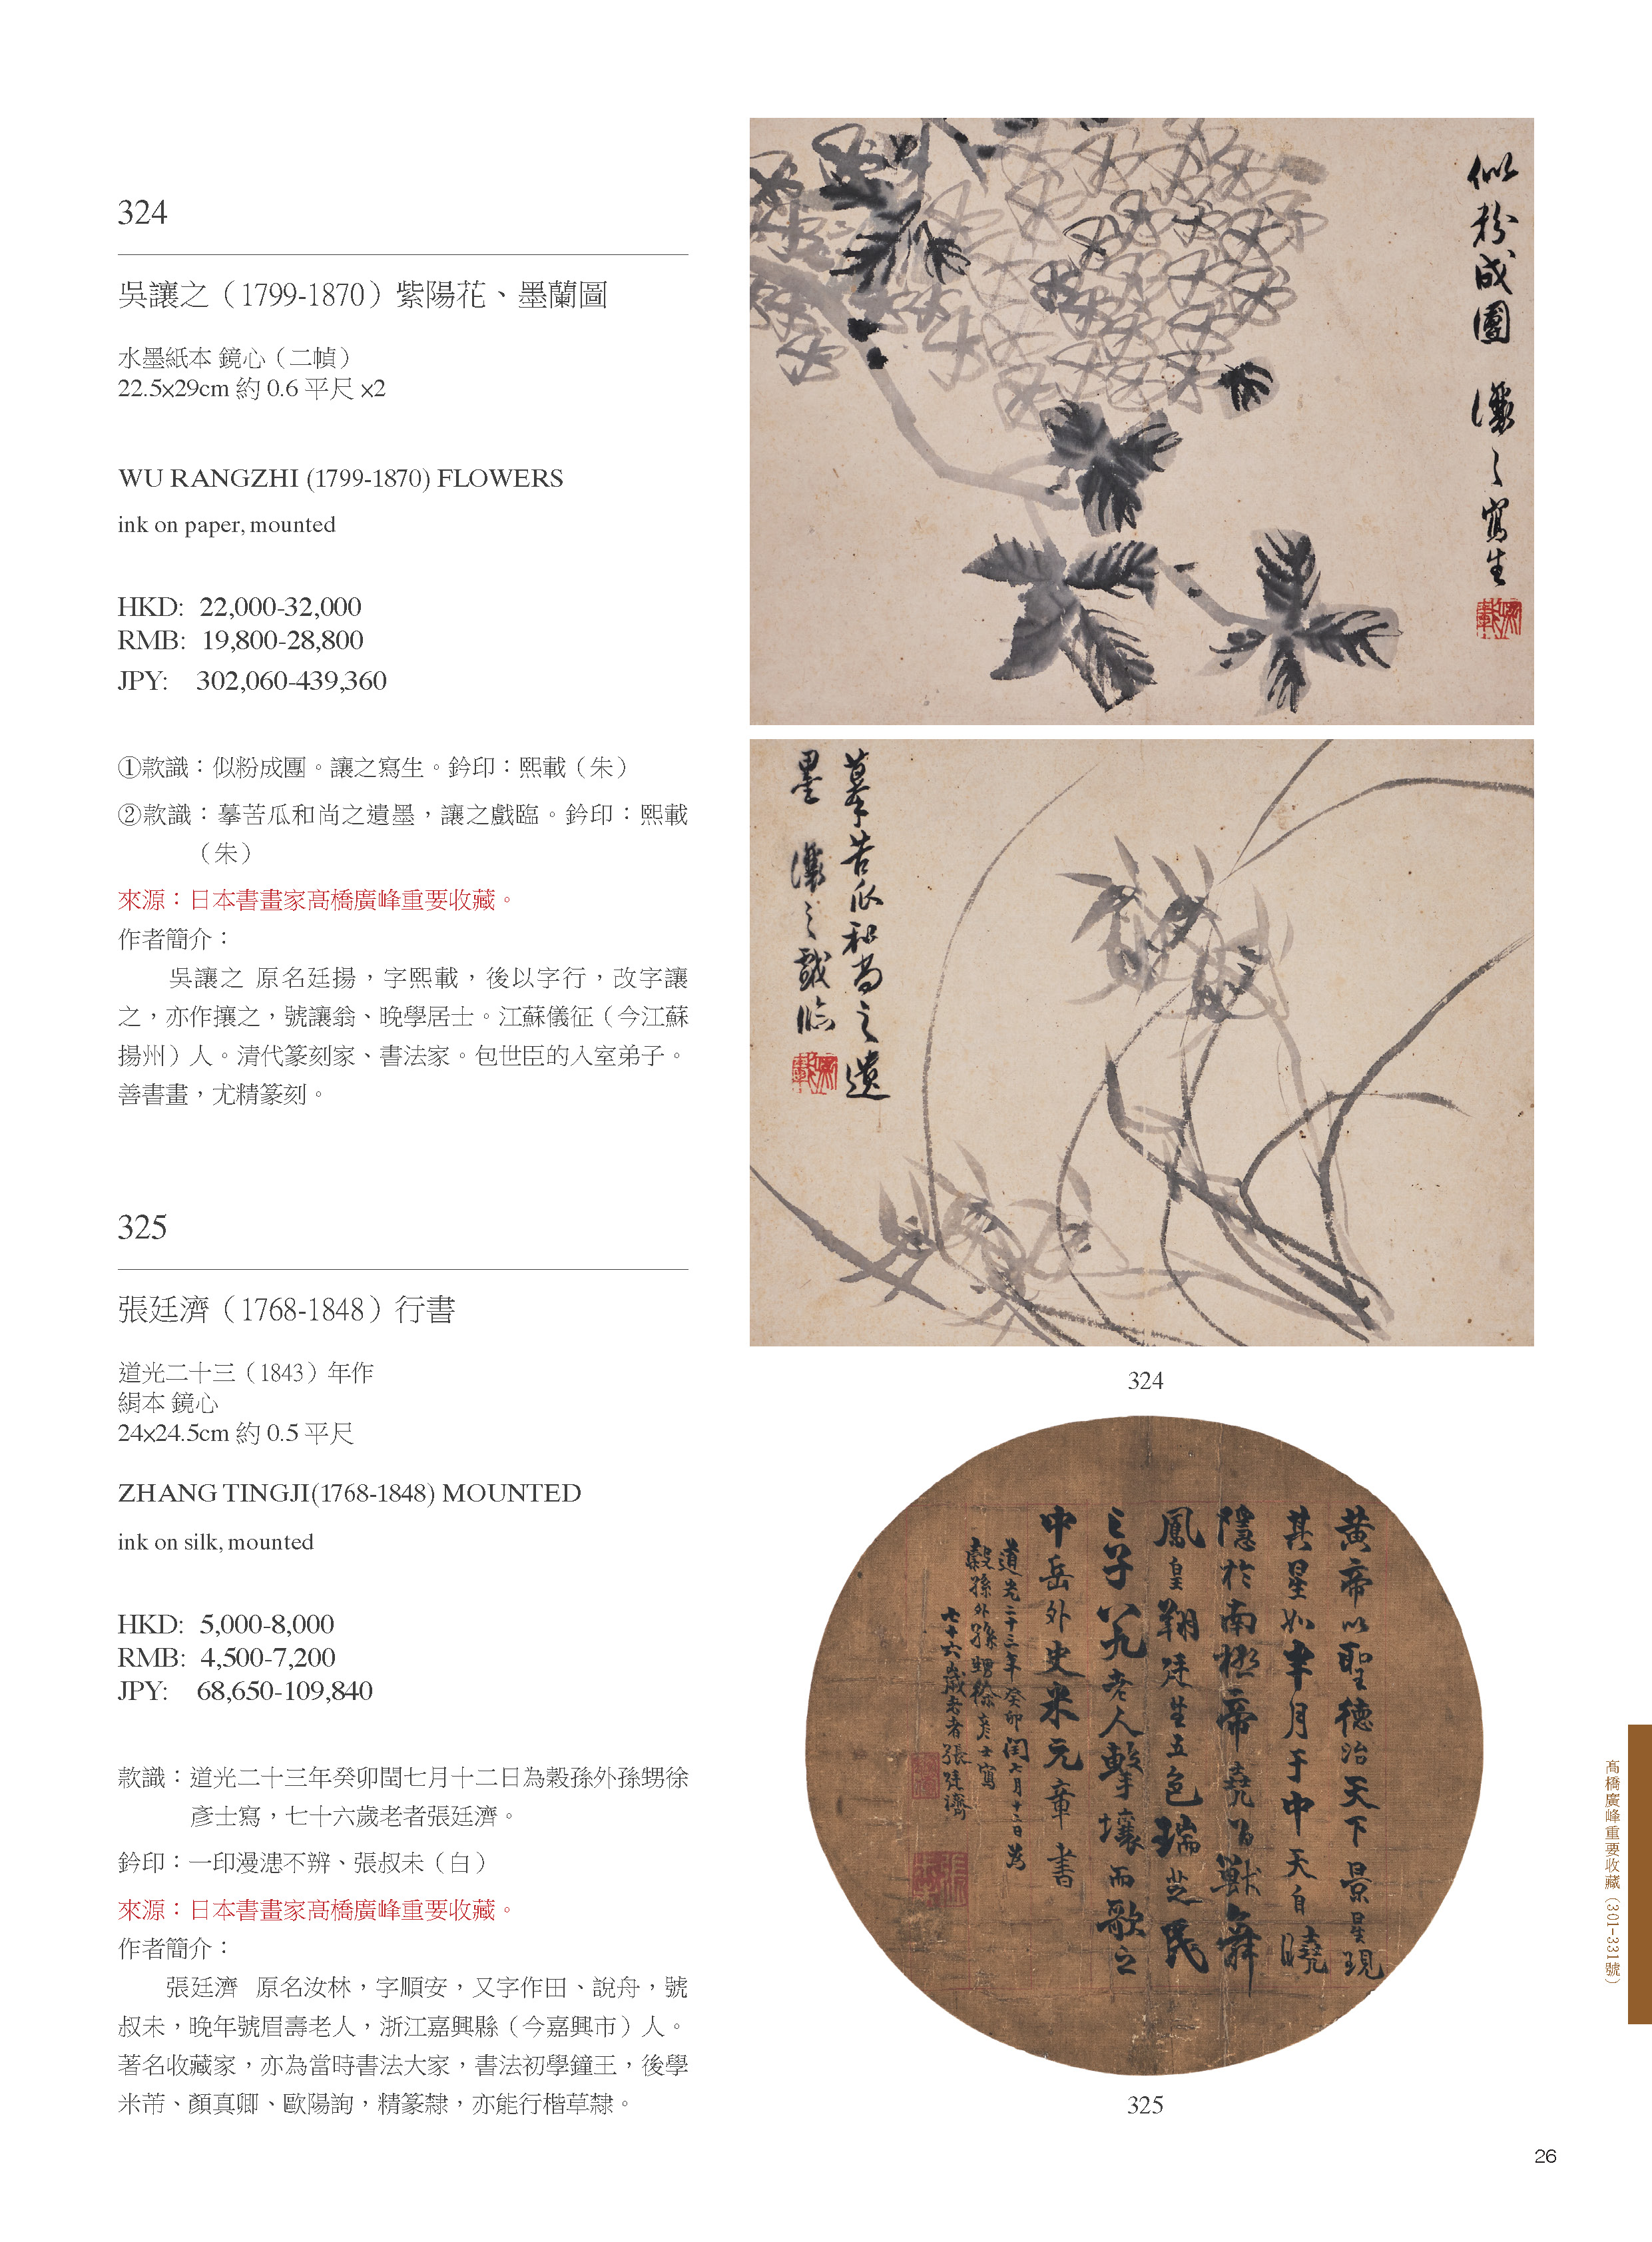 324
吳讓之（1799-1870）紫陽花、墨蘭圖
水墨紙本 鏡心（二幀）
22.5x29cm 約 0.6 平尺 x2
WU RANGZHI (1799-1870) FLOWERS
ink on paper, mounted
HKD: 22,000-32,000
RMB: 19,800-28,800
JPY: 302,060-439,360
①款識：似粉成團。讓之寫生。鈐印：熙載（朱）
②款識：摹苦瓜和尚之遺墨，讓之戲臨。鈐印：熙載
（朱）
來源：日本書畫家高橋廣峰重要收藏。
作者簡介：
吳讓之 原名廷揚，字熙載，後以字行，改字讓
之，亦作攘之，號讓翁、晚學居士。江蘇儀征（今江蘇
揚州）人。清代篆刻家、書法家。包世臣的入室弟子。
善書畫，尤精篆刻。
325
張廷濟（1768-1848）行書
道光二十三（1843）年作
絹本 鏡心
24x24.5cm 約 0.5 平尺
ZHANG TINGJI(1768-1848) MOUNTED
ink on silk, mounted
HKD: 5,000-8,000
RMB: 4,500-7,200
JPY: 68,650-109,840
款識：道光二十三年癸卯閏七月十二日為穀孫外孫甥徐
彥士寫，七十六歲老者張廷濟。
鈐印：一印漫漶不辨、張叔未（白）
來源：日本書畫家高橋廣峰重要收藏。
作者簡介：
張廷濟 原名汝林，字順安，又字作田、說舟，號
叔未，晚年號眉壽老人，浙江嘉興縣（今嘉興市）人。
著名收藏家，亦為當時書法大家，書法初學鐘王，後學
米芾、顏真卿、歐陽詢，精篆隸，亦能行楷草隸。
似粉成團 讓之寫生
熙載
摹苦瓜和尚之遺
墨 讓之戲臨
熙載
324
黃帝以聖德治天下景星現
其星如半月于中天自曉
隱於南極帝堯百獸舞
鳳皇翔廷生五色瑞芝民
之子八九老人擊壤而歌之
中岳外史米元章書
道光二十三年癸卯閏七月十二日為
穀孫外孫甥徐彥士寫
七十六歲老者張廷濟
325
高橋廣峰重要收藏（301-331號）
26